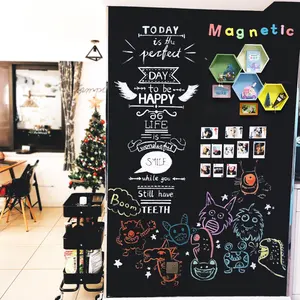 TODAY
is the
perfect
DAY
to be
HAPPY
LIFE
IS
SMILE
while you
Still have
TEETH
Magnetic
Boom